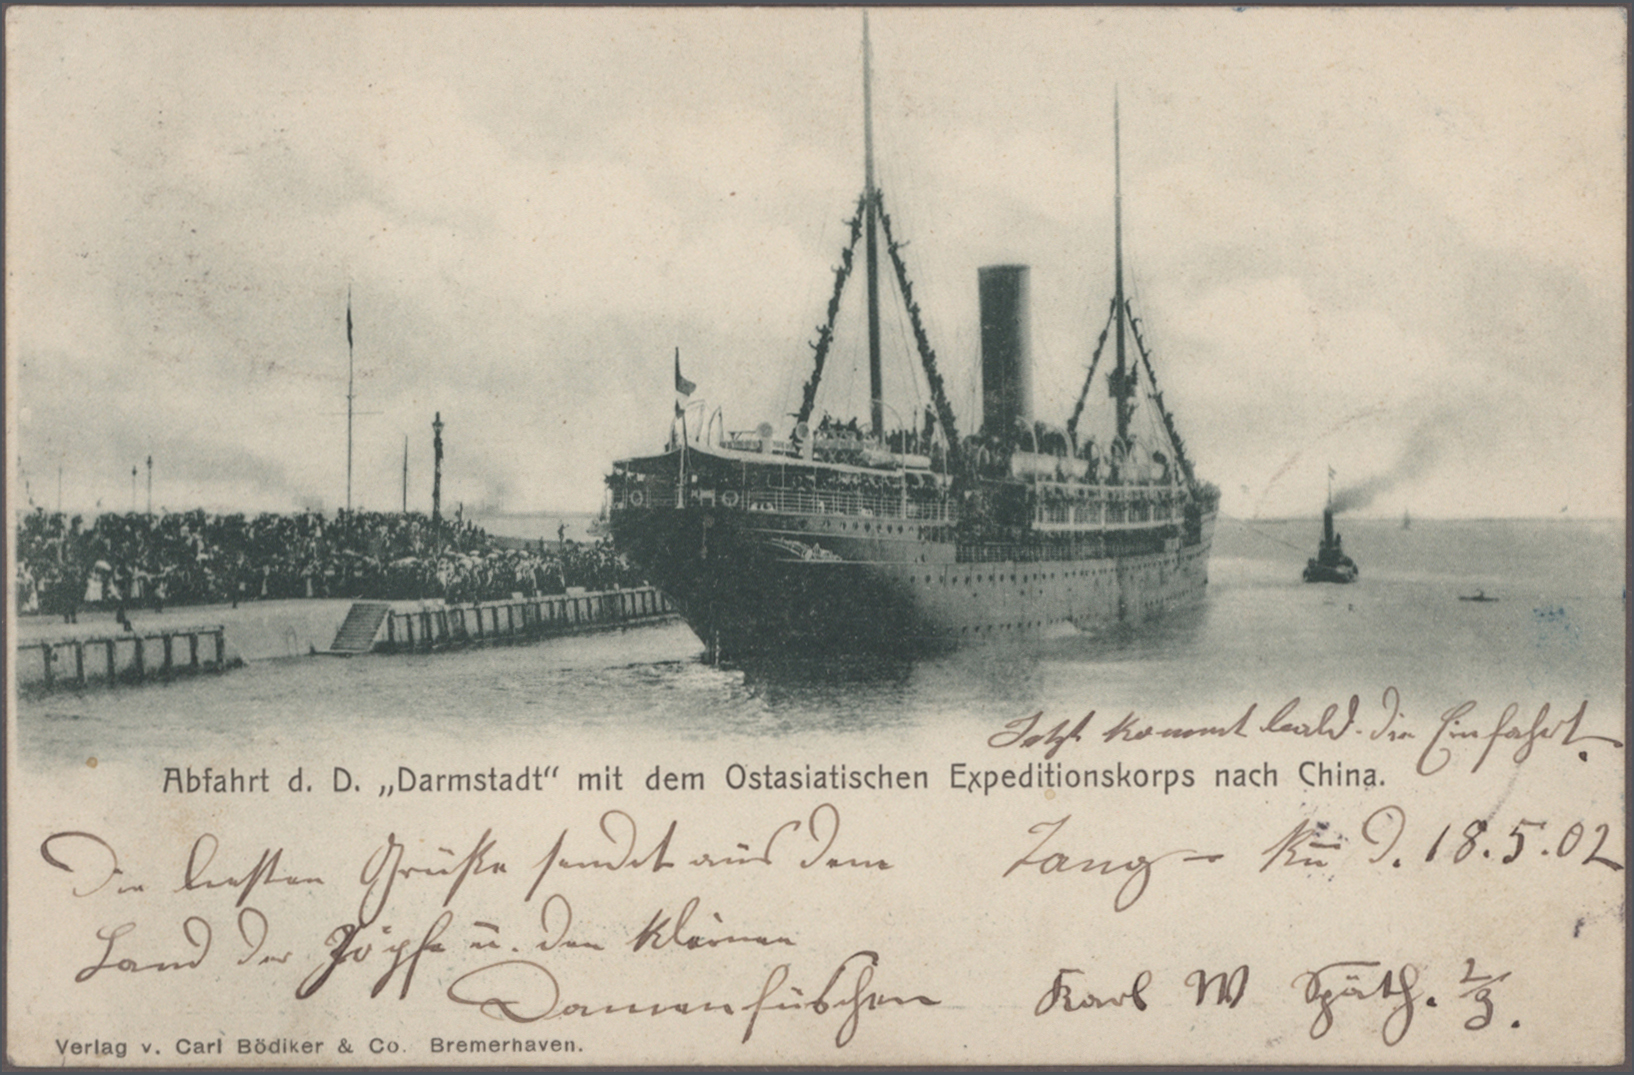 Jetzt kommt bald die Einfahrt.
Abfahrt d. D. „Darmstadt“ mit dem Ostasiatischen Expeditionskorps nach China.
Die besten Grüße sendet aus dem
Land der Zöpfe u. den kleinen
Damenfüßchen
Tang-Ku d. 18.5.02
Karl W Späth.
Verlag v. Carl Bödiker & Co. Bremerhaven.